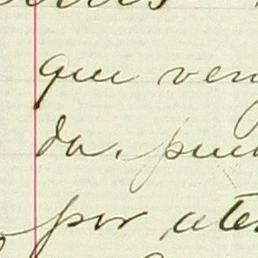 que ven
da. pue
por ate